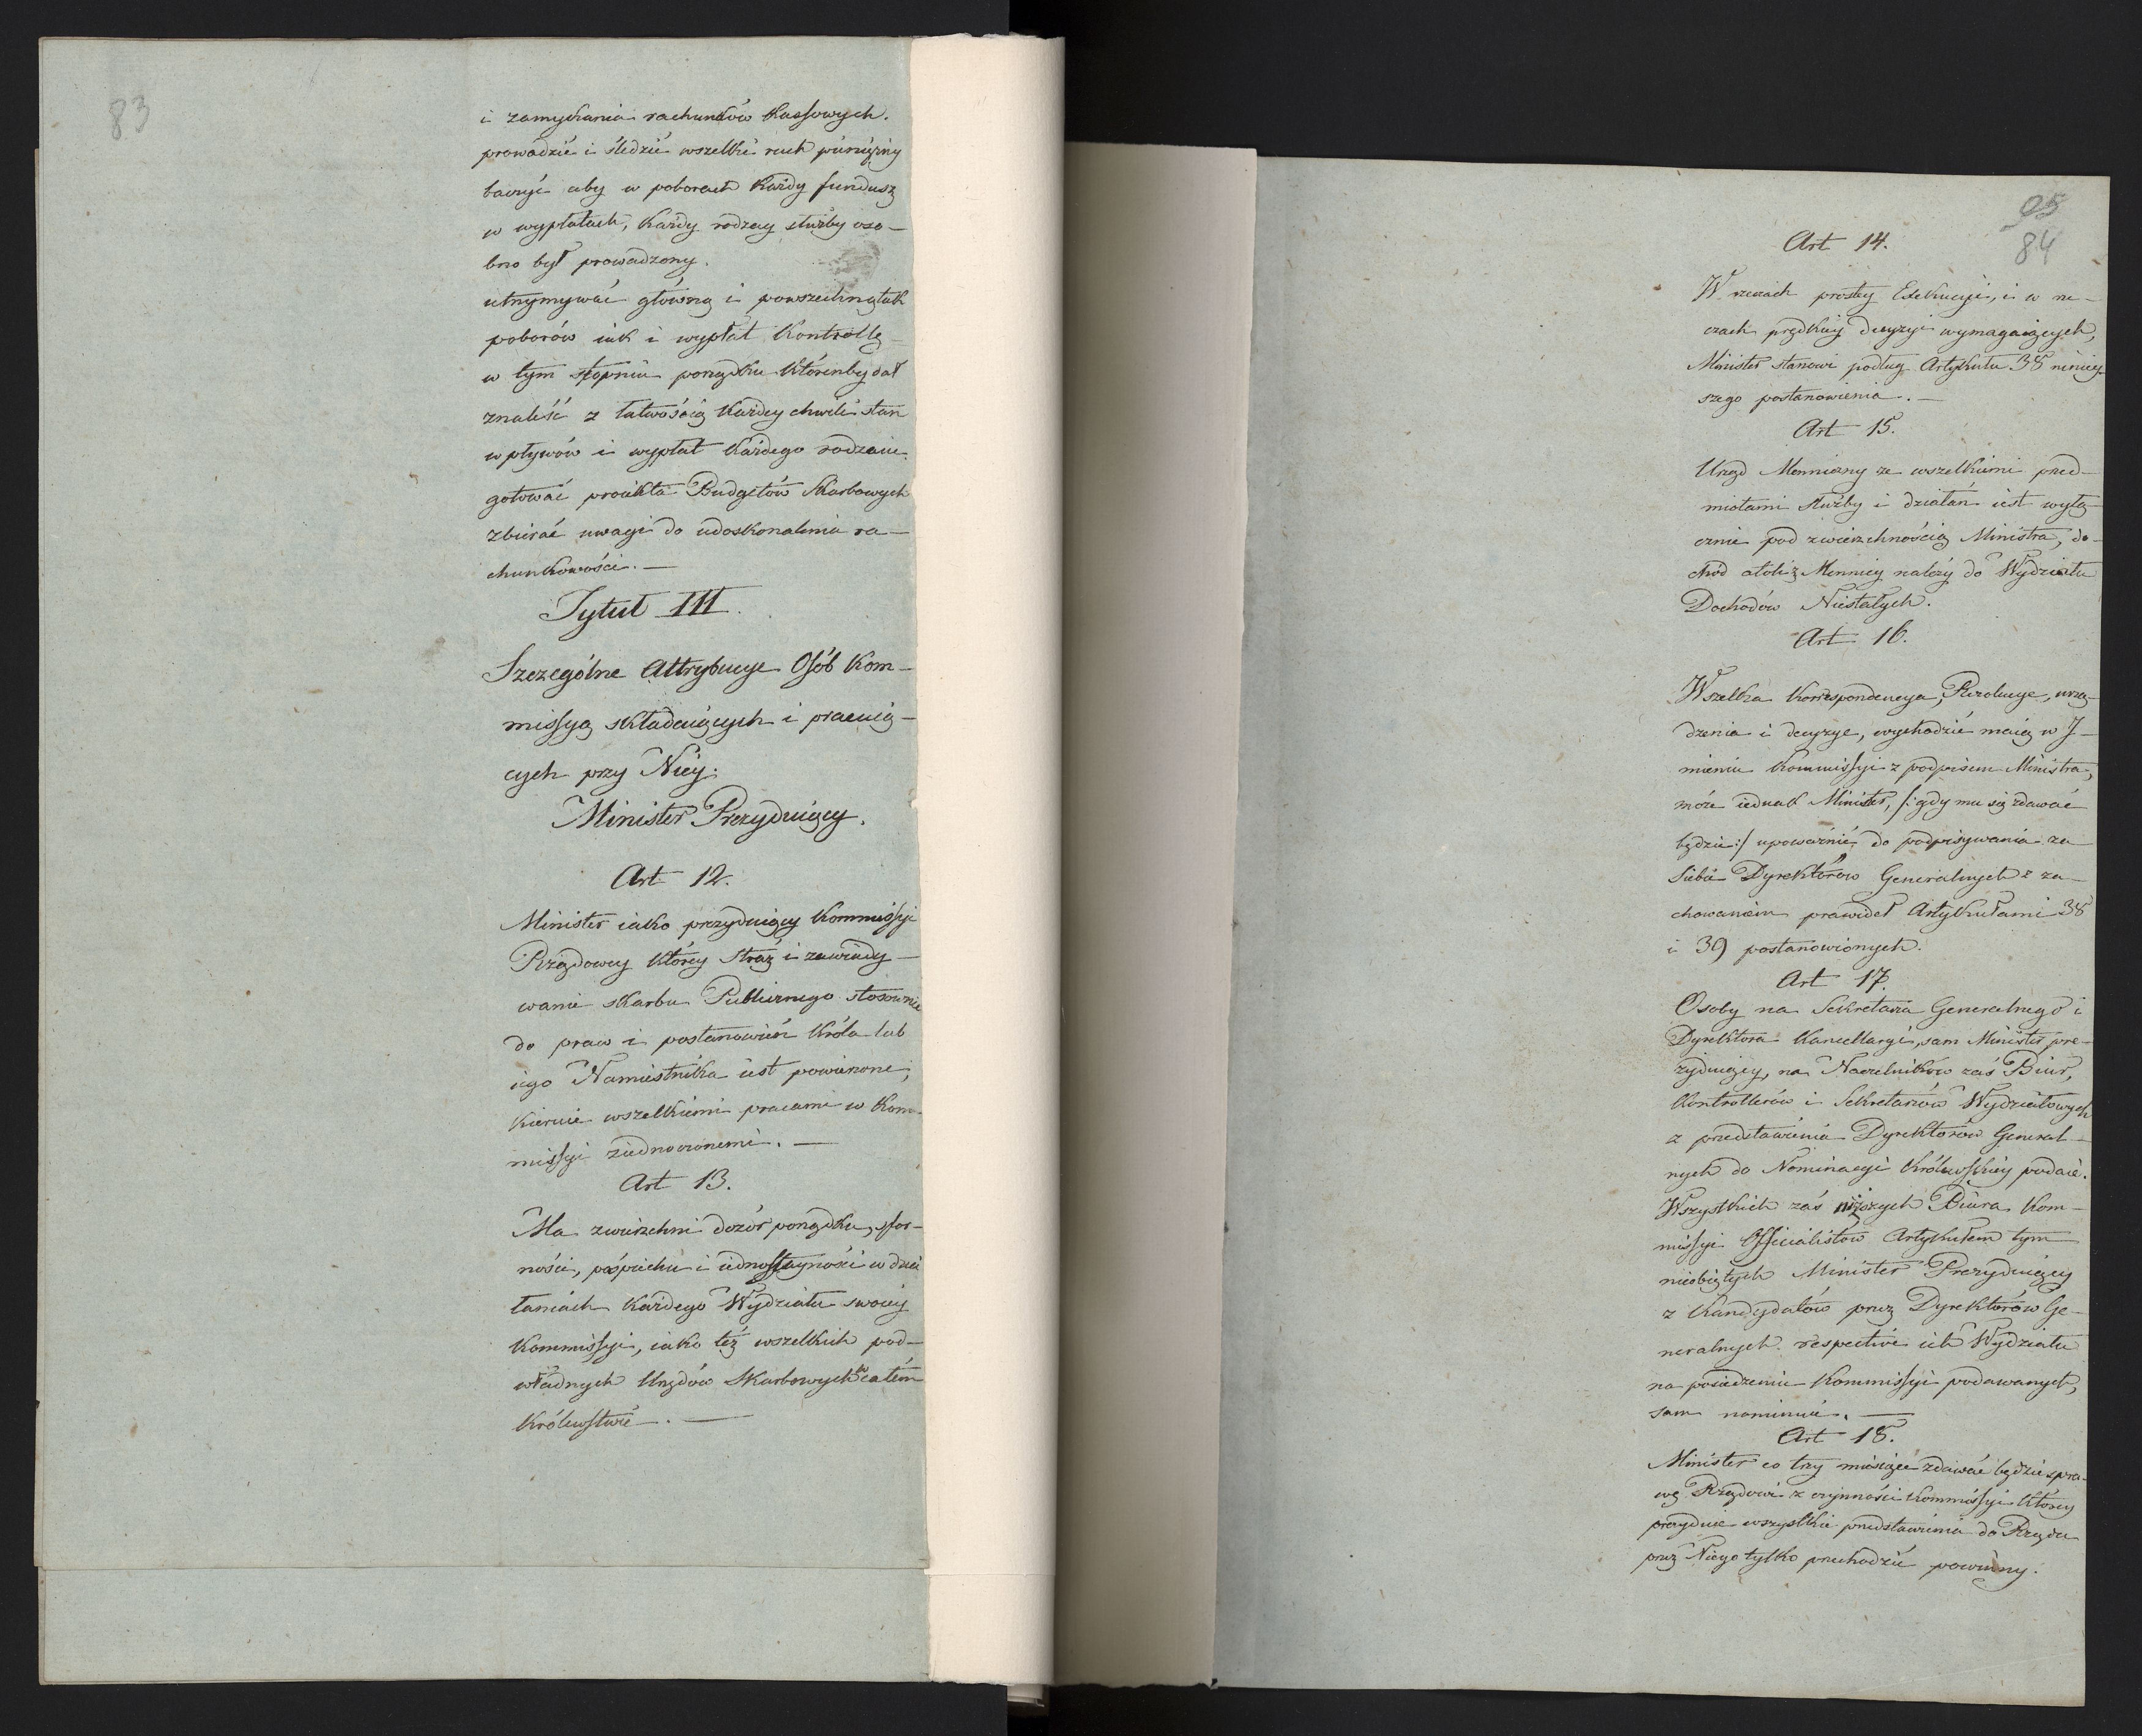 83
i zamykania rachunków kassowych.
prowadzić i śledzić wszelki ruch pieniężny
baczyć aby w poborach każdy fundusz
w wypłatach, każdy rodzay służby oso-
bno był prowadzony.
utrzymywać główną i powszechną tak
poborów iak i wypłat kontrollę
w tym stopniu porządku którenby dał
znaleść z łatwością każdey chwili stan
wpływów i wypłat każdego rodzaiu.
gotować proiekta Budgetów Skarbowych
zbierać uwagi do udoskonalenia ra-
chunkowości. —
Tytuł III.
Szczególne Attrybucye Osób Kom-
missyą składaiących i pracuią-
cych przy Niey.
Minister Prezyduiący.
Art 12.
Minister iako prezyduiący Kommissyi
Rządowey którey straż i zawiady-
wanie skarbu Publicznego stosownie
do praw i postanowień Króla lub
iego Namiestnika iest powierzone,
kieruie wszelkiemi pracami w Kom-
missyi ziednoczonemi. —
Art 13.
Ma zwierzchni dozór porządku, sfor-
ności, pośpiechu i iednostayności w dzia
łaniach każdego Wydziału swoiey
Kommissyi, iako też wszelkich pod-
władnych Urzędów Skarbowych w całém
Królewstwie. —
95
84
Art 14.
W rzeczach prostey Exekucyi, i w rze-
czach prędkiey decyzyi wymagaiących,
Minister stanowi podług Artykułu 38 niniey-
szego postanowienia. —
Art 15.
Urząd Menniczny ze wszelkiemi przed-
miotami służby i działań iest wyłą-
cznie pod zwierzchnością Ministra, do-
chód atoli z Mennicy należy do Wydziału
Dochodów Niestałych.
Art 16.
Wszelka korrespondencya, Rezolucye, urzą-
dzenia i decyzye, wychodzić maią w J-
mieniu Kommissyi z podpisem Ministra,
może iednak Minister, /: gdy mu się zdawać
będzie :/ upoważnić do podpisywania za
siebie Dyrektorów Generalnych z za-
chowaniem prawideł Artykułami 38
i 39 postanowionych.
Art 17.
Osoby na Sekretarza Generalnego i
Dyrektora Kancellaryi, sam Minister pre-
zyduiący, na Naczelników zaś Biur,
Kontrollerów i Sekretarzów Wydziałowych
z przedstawienia Dyrektorów General-
nych do Nominacyi Królewskiey podaie.
Wszystkich zaś niższych Biura Kom-
missyi Officialistów Artykułem tym
nieobiętych Minister Prezyduiący
z Kandydatów przez Dyrektorów Ge-
neralnych respective ich Wydziału
na posiedzeniu Kommissyi podawanych,
sam nominuie. —
Art 18.
Minister co trzy miesiące zdawać będzie spra-
wę Rządowi z czynności Kommissyi którey
prezyduie wszystkie przedstawienia do Rządu
przez Niego tylko przechodzić powinny.